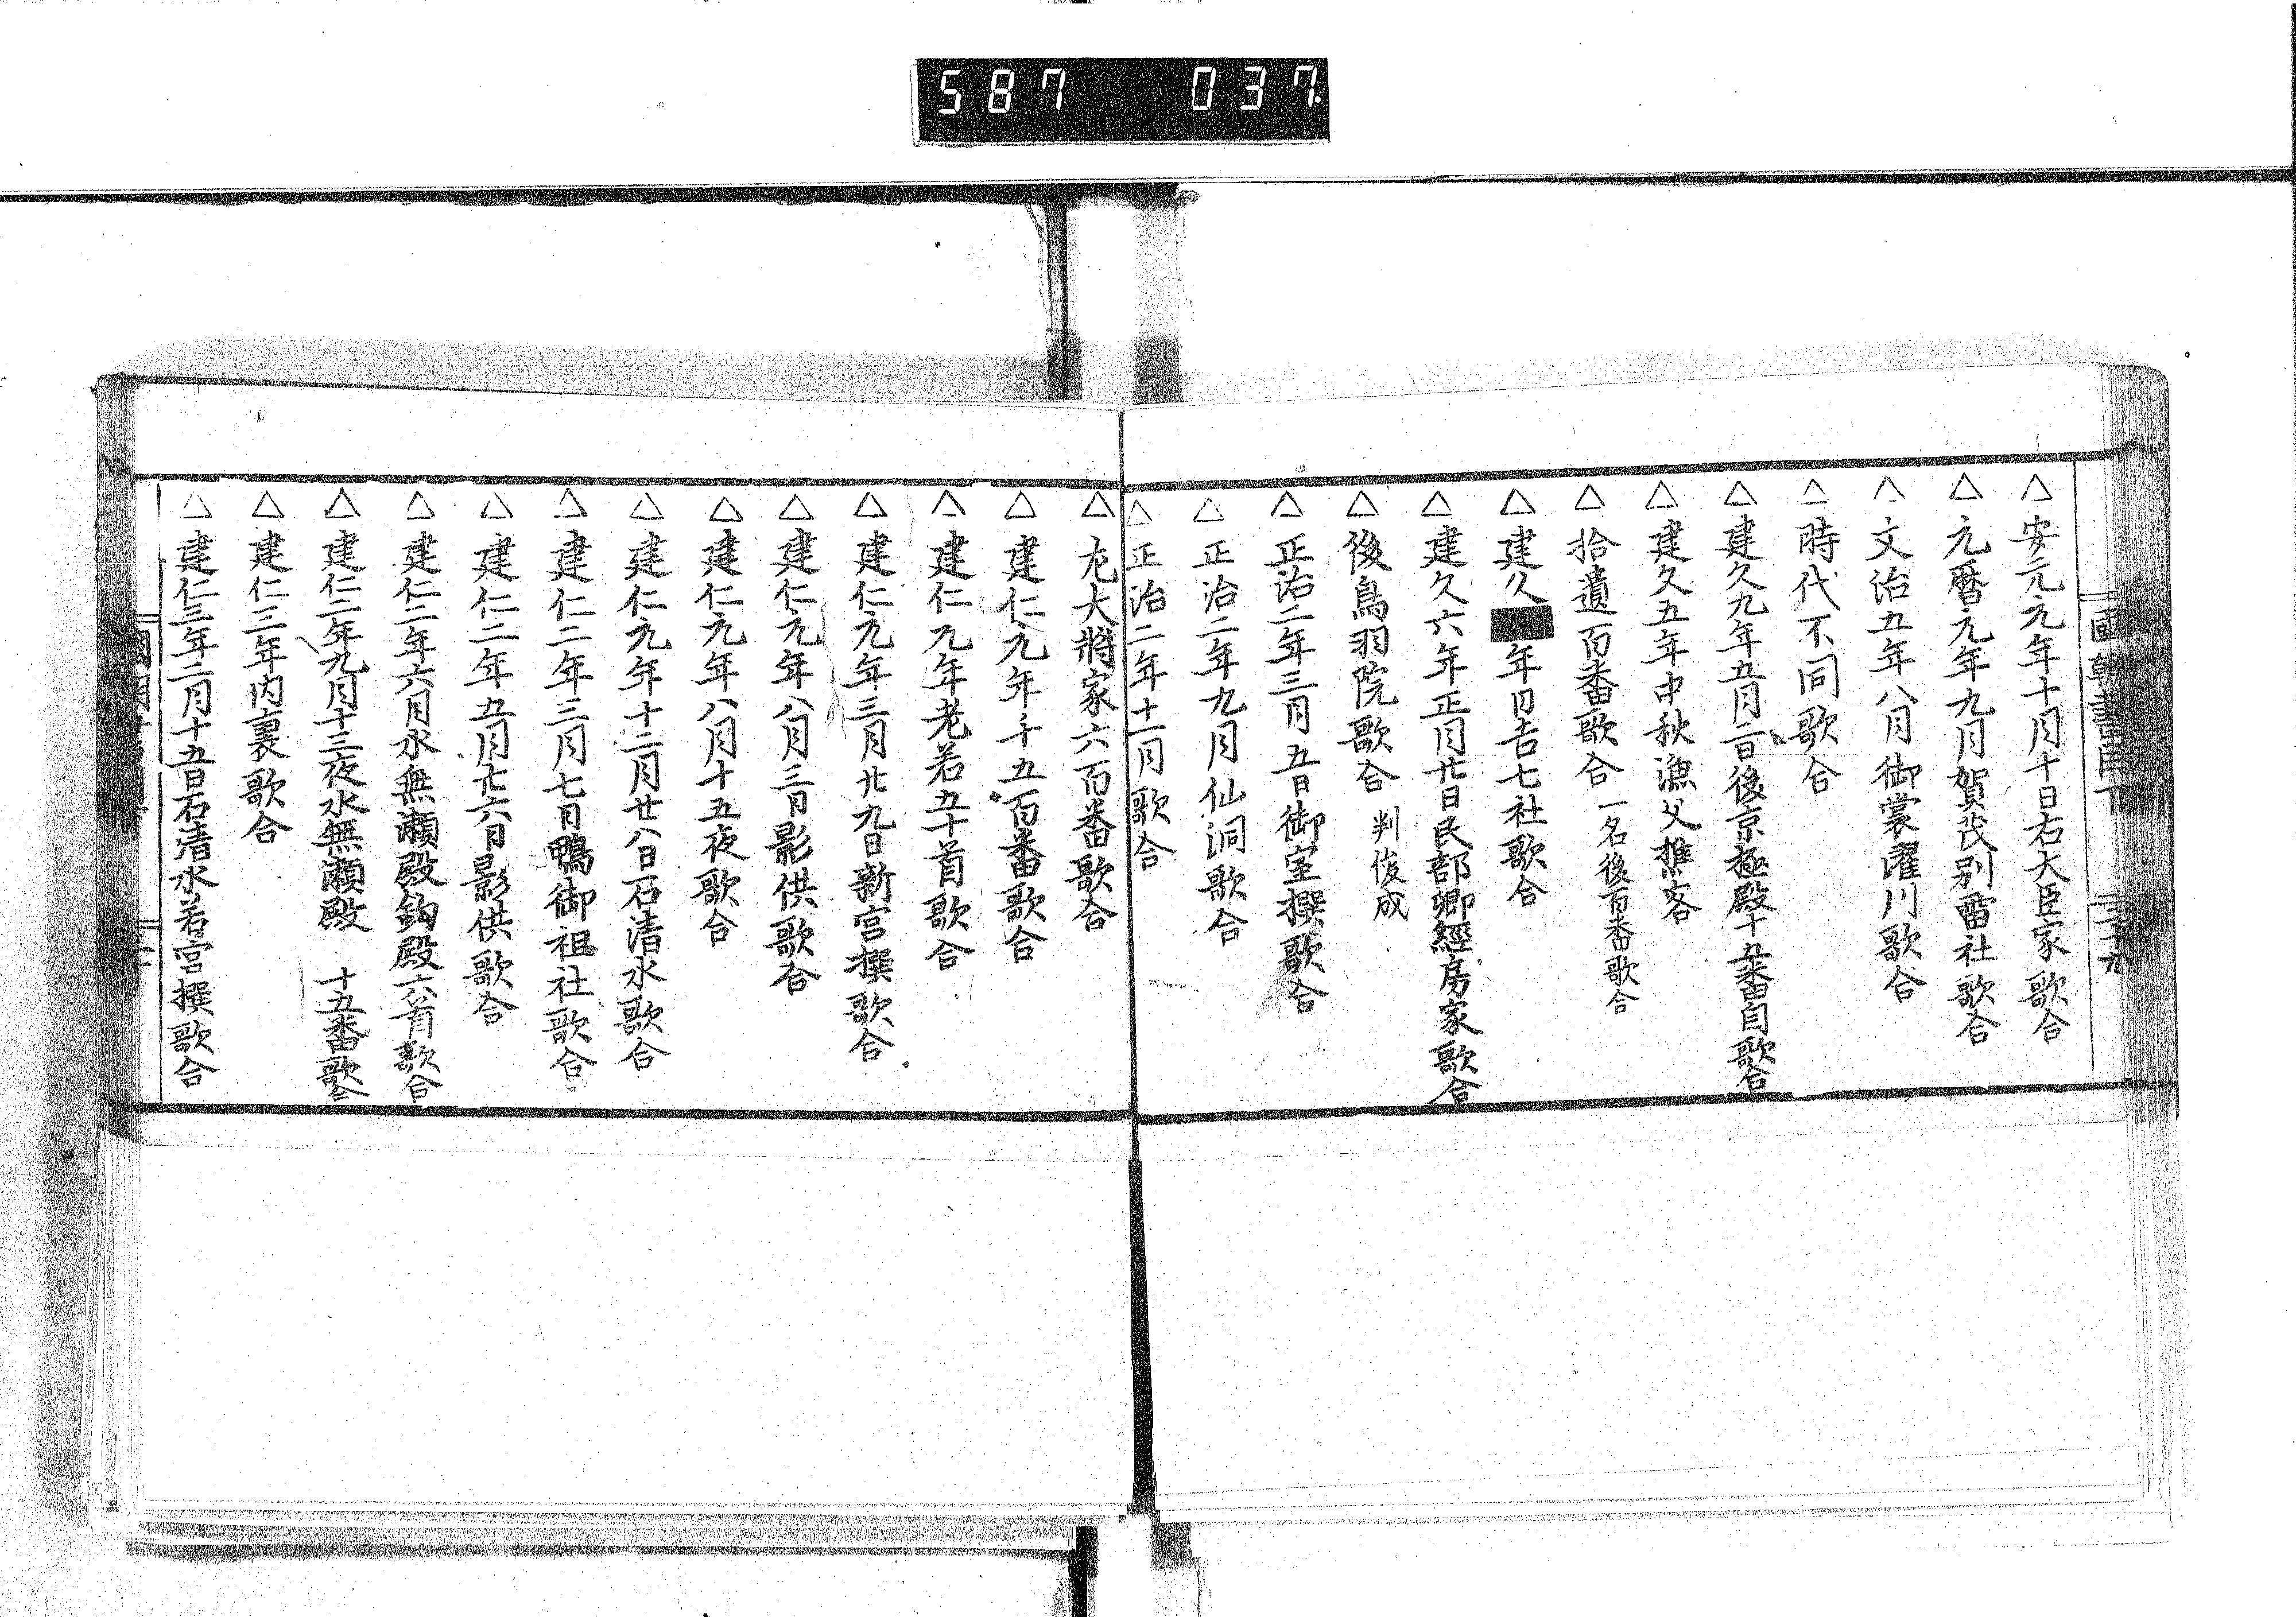 587 037
國朝書目下 三十九
△安元元年十月十日右大臣家歌合
△元暦元年九月賀茂別雷社歌合
△文治五年八月御裳濯川歌合
△時代不同歌合
△建久九年五月二日後京極殿十五番自歌合
△建久五年中秋漁父樵客
△拾遺百番歌合 一名後百番歌合
△建久 年日吉七社歌合
△建久六年正月廿日民部卿經房家歌合
△後鳥羽院歌合 判俊成
△正治二年三月五日御室撰歌合
△正治二年九月仙洞歌合
△正治二年十一月歌合
△左大將家六百番歌合
△建仁元年千五百番歌合
△建仁元年老若五十首歌合
△建仁元年三月廿九日新宮撰歌合
△建仁元年八月三日影供歌合
△建仁元年八月十五夜歌合
△建仁元年十二月廿八日石清水歌合
△建仁二年三月七日鴨御祖社歌合
△建仁二年五月廿六日影供歌合
△建仁二年六月水無瀬殿釣殿六首歌合
△建仁二年九月十三夜水無瀬殿 十五番歌合
△建仁三年内裏歌合
△建仁三年二月十五日石清水若宮撰歌合